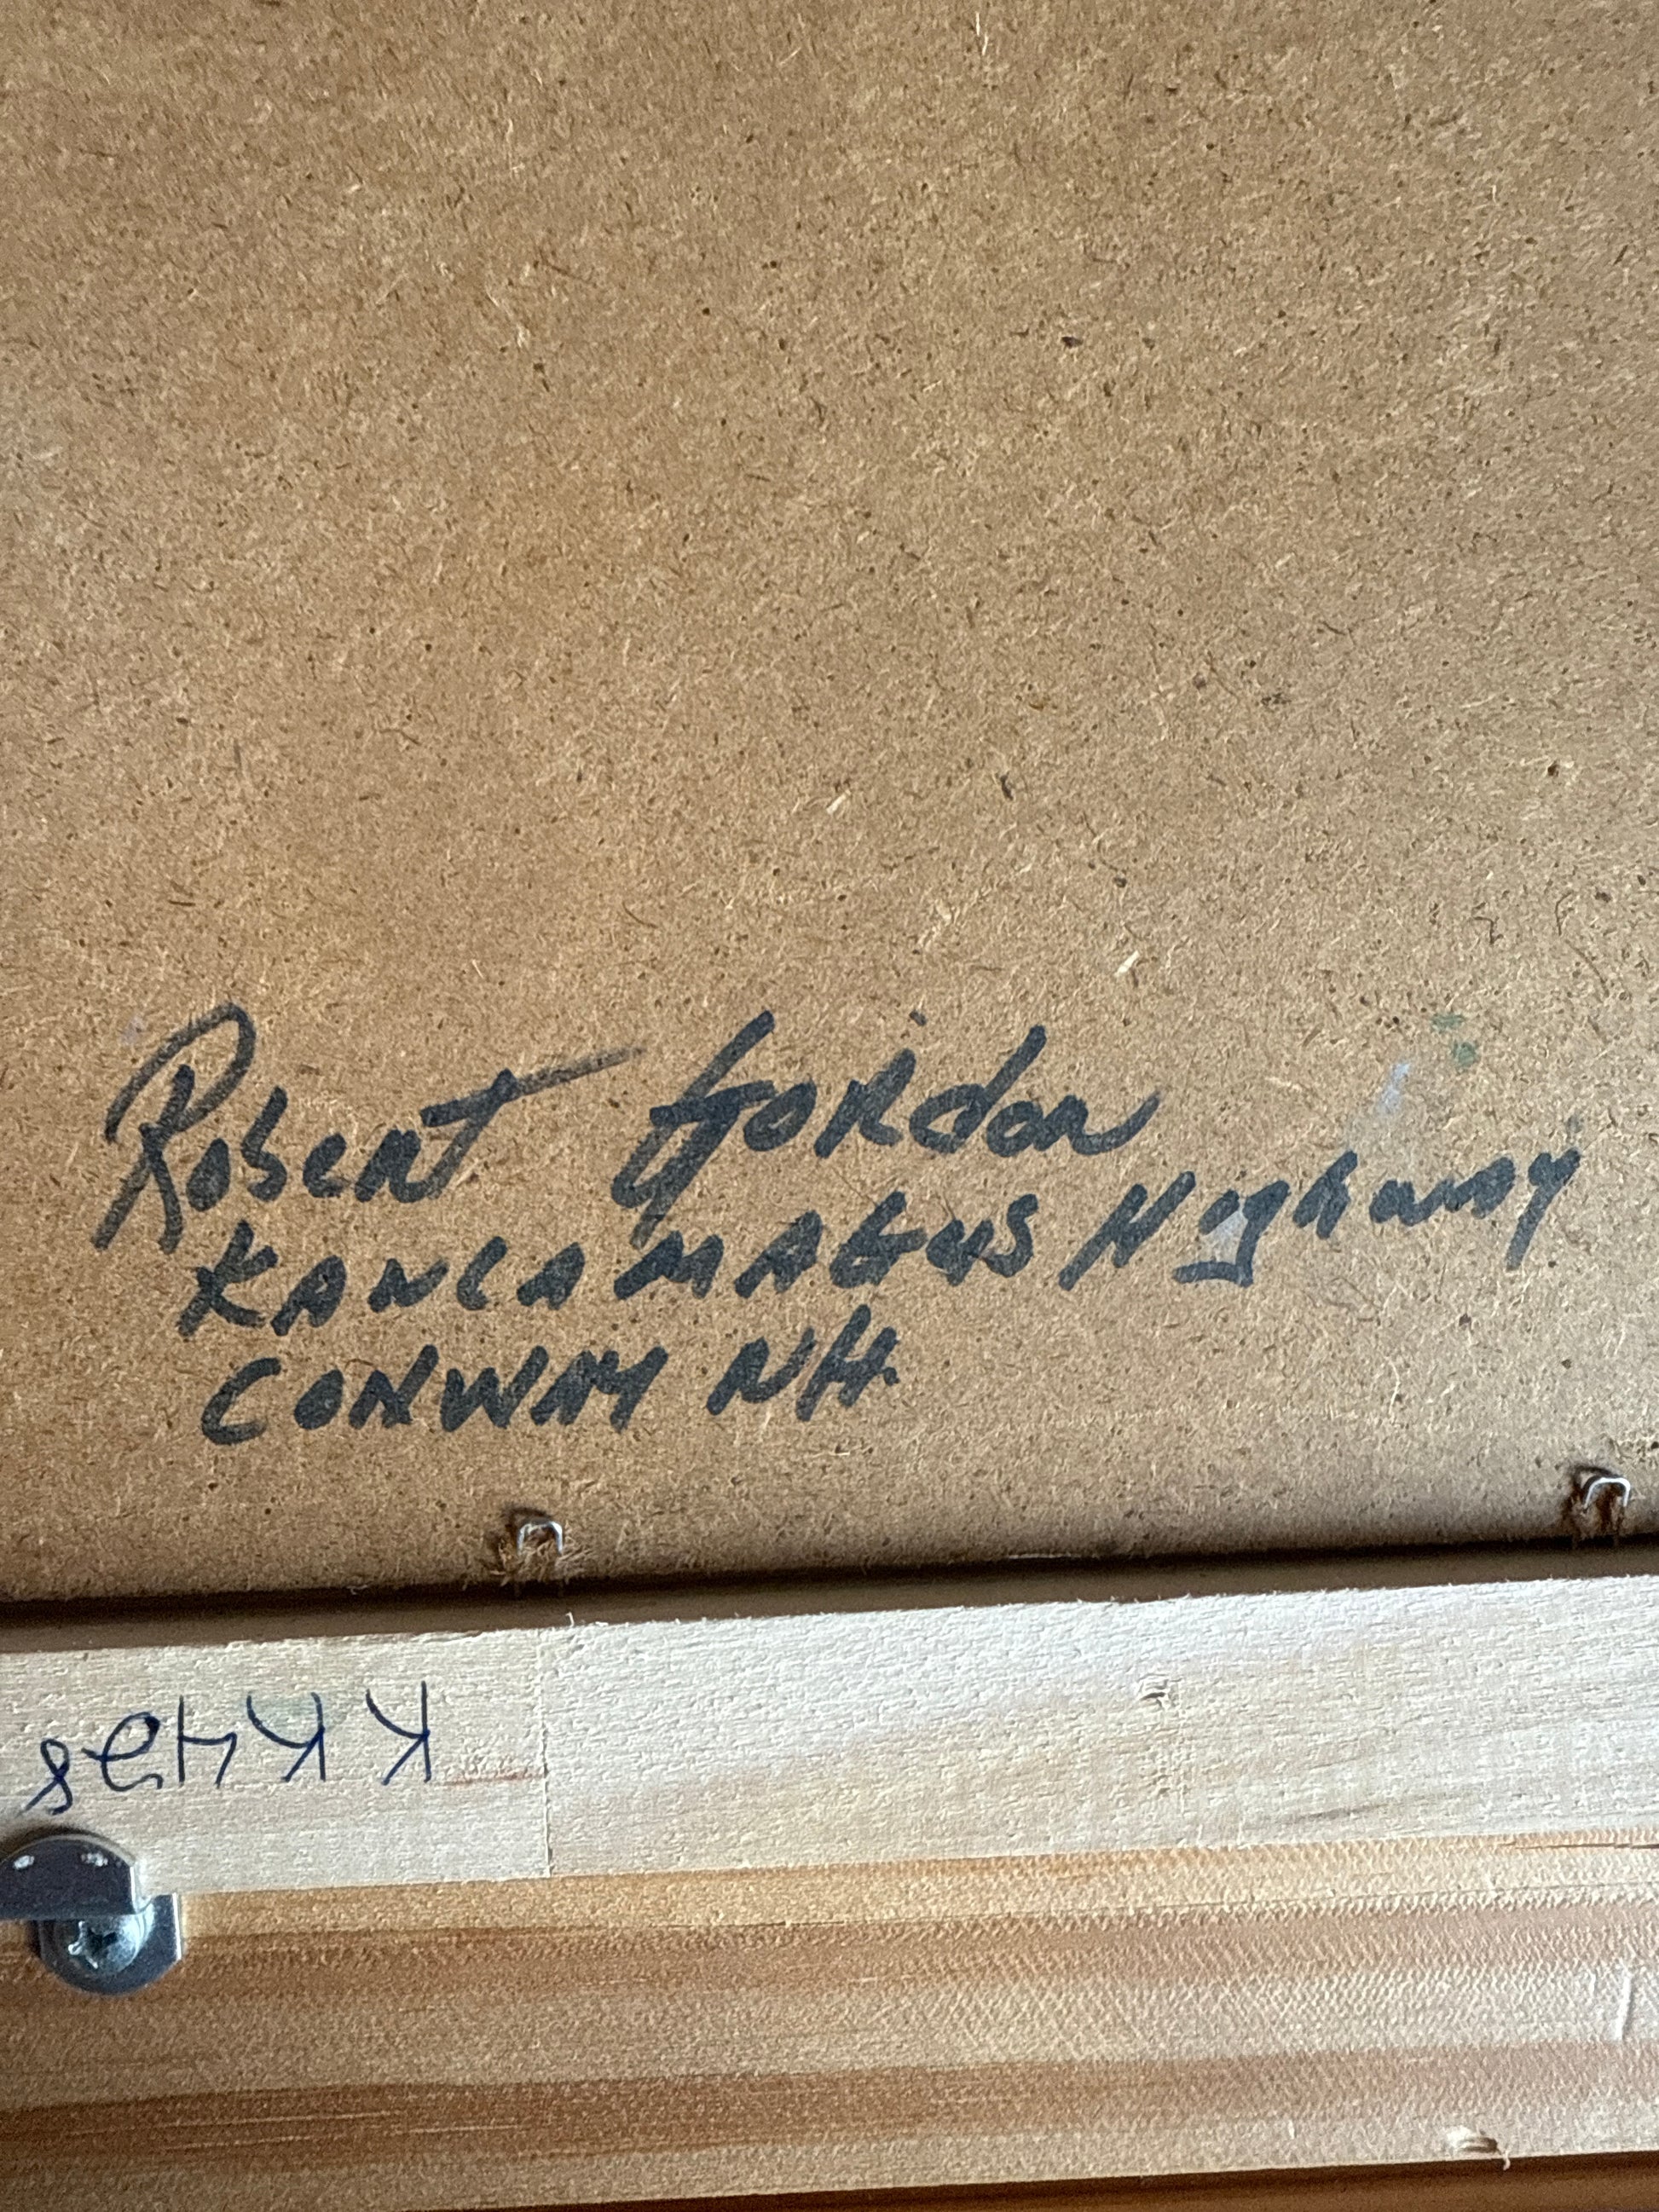 Robert Gordon
KANCAMAGUS Highway
CONWAY NH.
KK428